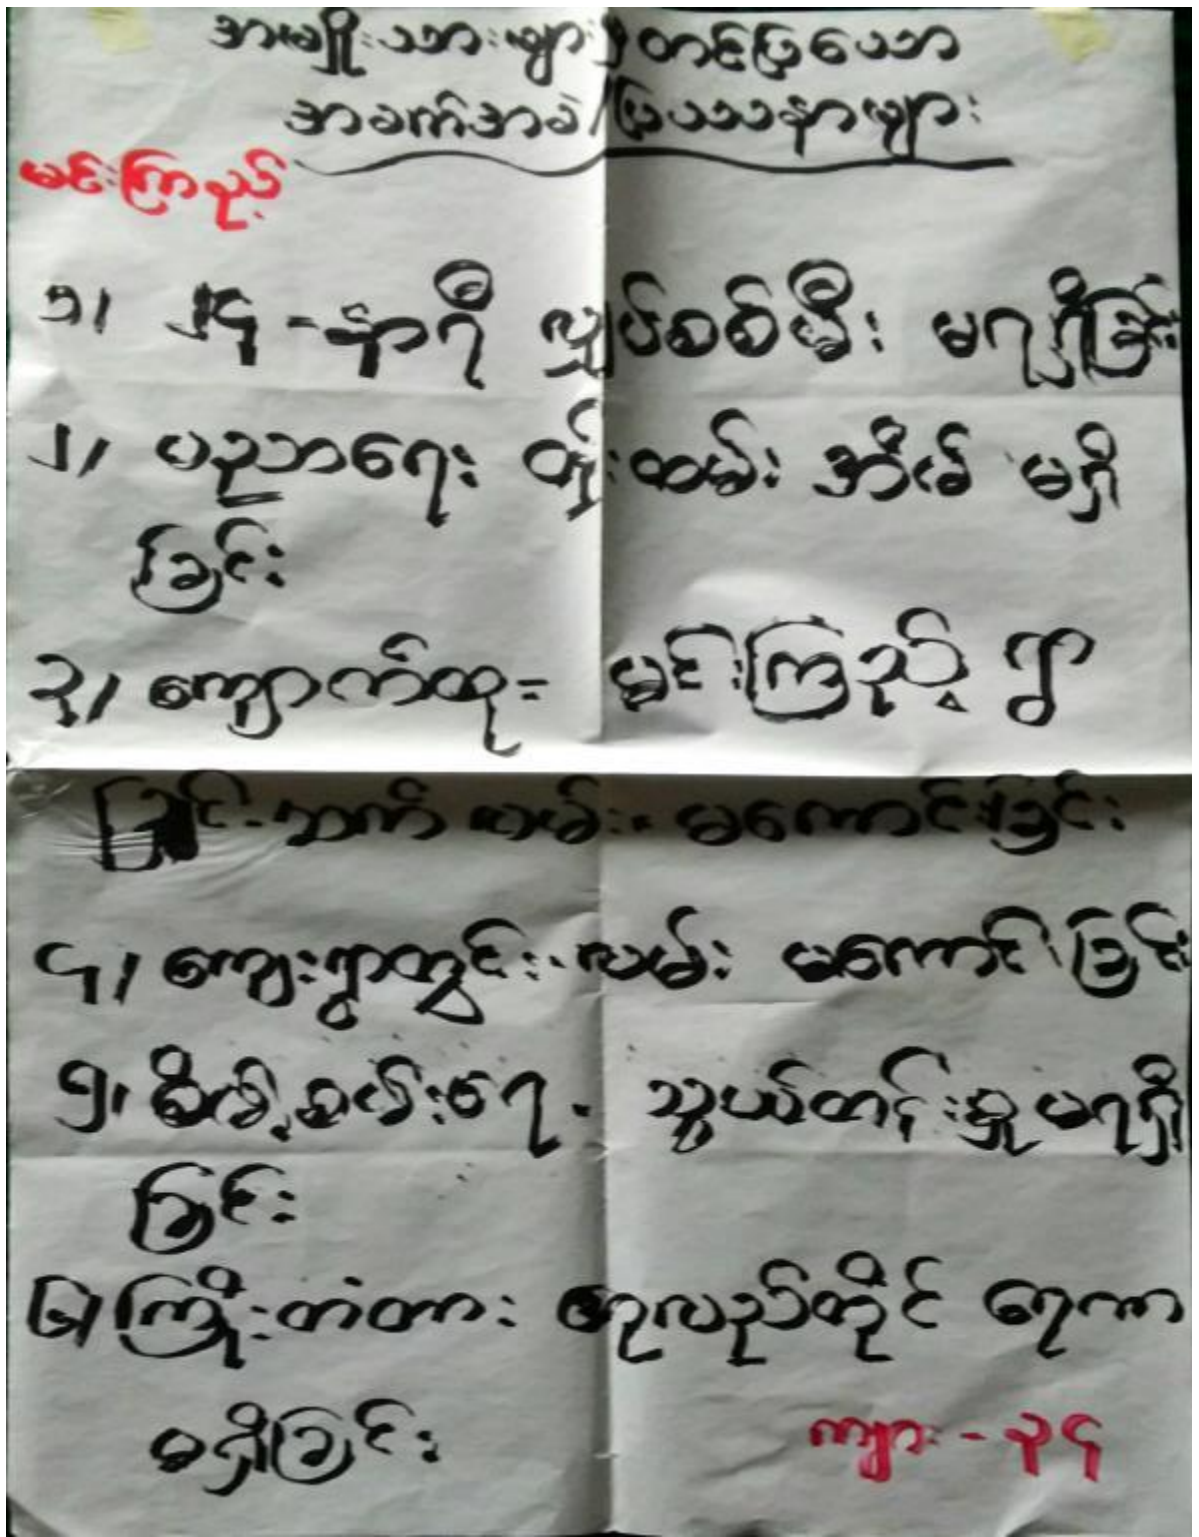 အမျိုးသားများမှတင်ပြသော
အခက်အခဲ/ပြဿနာများ
မင်းကြည့်
၁၊ ၂၄-နာရီ လျှပ်စစ်မီး မရရှိခြင်း
၂၊ ပညာရေး ဝန်ထမ်း အိမ် မရှိ
ခြင်း
၃၊ ကျောက်ထု = မင်းကြည့် ရွာ
ချင်းဆက် လမ်း မကောင်းခြင်း
၄၊ ကျေးရွာတွင်း လမ်း မကောင်းခြင်း
၅၊ စိမ့်စမ်းရေ သွယ်တန်းမှု မရရှိ
ခြင်း
၆၊ ကြိုးတံတား ရေကာ
မရှိခြင်း
ကျား - ၃၄